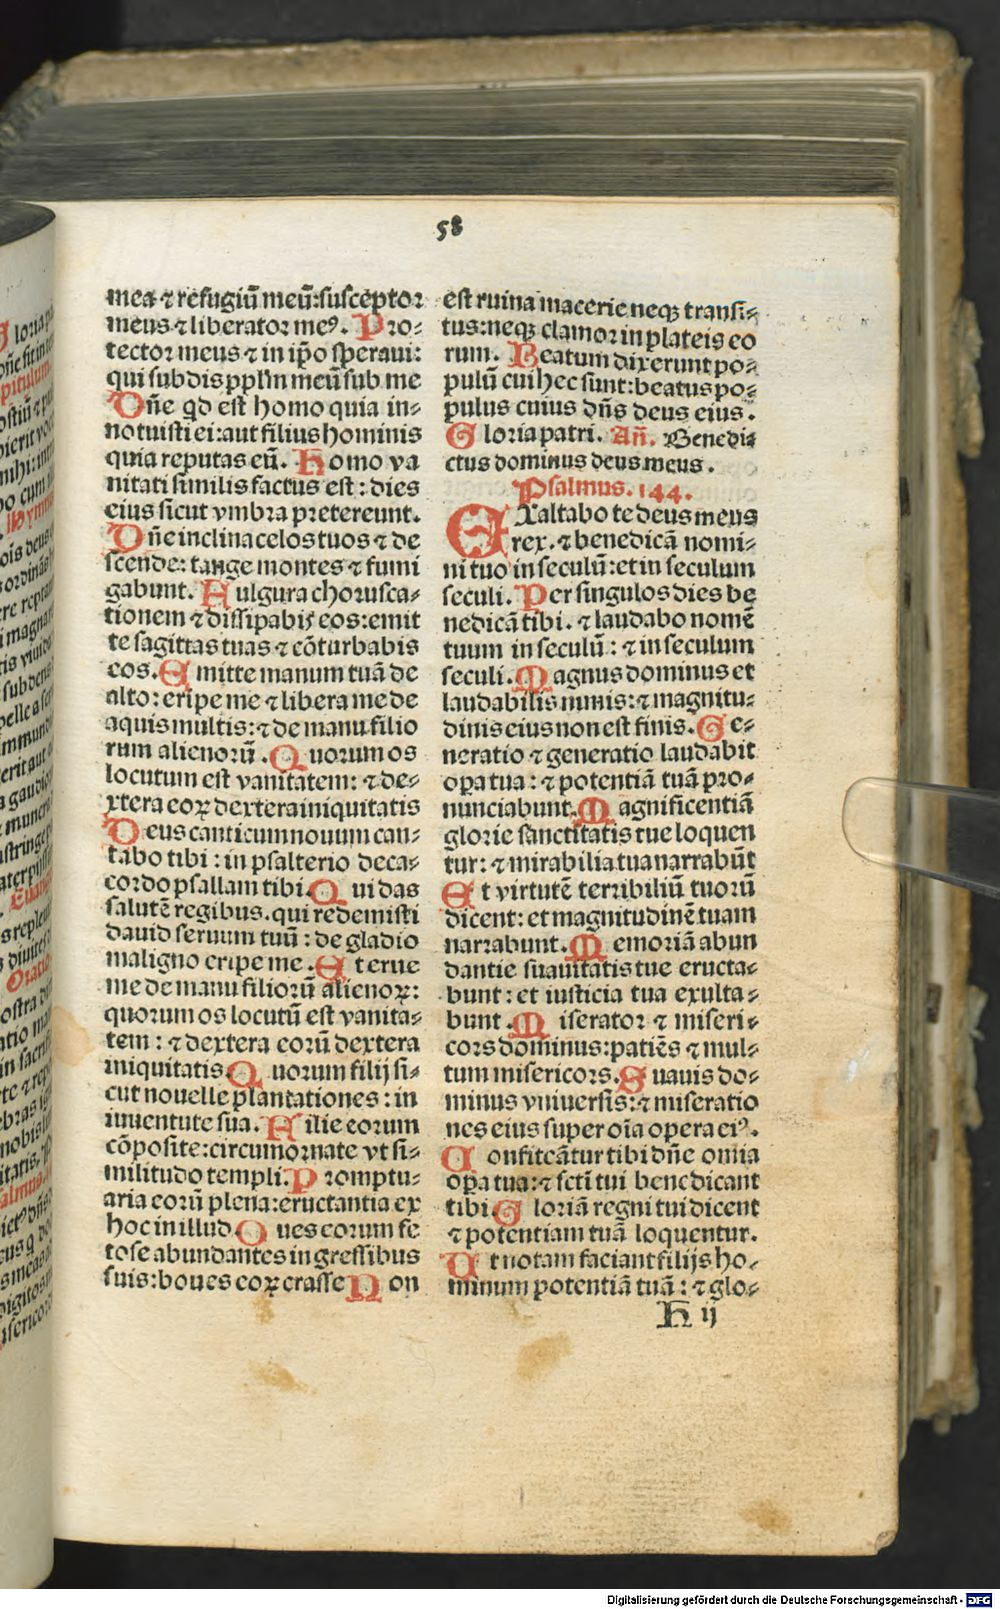 58
mea ⁊ refugiū meū:susceptor
meus ⁊ liberator meꝰ. Pro-
tector meus ⁊ in ip̄o speraui:
qui subdis ppl̄m meū sub me
Dn̄e qd est homo quia in-
notuisti ei: aut filius hominis
quia reputas eū. Homo va
nitati similis factus est: dies
eius sicut vmbra pretereunt.
Dn̄e inclina celos tuos ⁊ de
scende: tange montes ⁊ fumi
gabunt. Fulgura chorusca-
tionem ⁊ dissipabis eos: emit
te sagittas tuas ⁊ cōturbabis
eos. Emitte manum tuā de
alto: eripe me ⁊ libera me de
aquis multis: ⁊ de manu filio
rum alienorū. Quorum os
locutum est vanitatem: ⁊ de-
xtera eoꝝ dextera iniquitatis
Deus canticum nouum can-
tabo tibi: in psalterio deca-
cordo psallam tibi. Qui das
salutē regibus. qui redemisti
dauid seruum tuū: de gladio
maligno eripe me. Et erue
me de manu filiorū alienoꝝ:
quorum os locutū est vanita-
tem: ⁊ dextera eorū dextera
iniquitatis. Quorum filij si-
cut nouelle plantationes: in
iuuentute sua. Filie eorum
cōposite: circumornate vt si-
militudo templi. Promptu-
aria eorū plena: eructantia ex
hoc in illud. Oues eorum fe
tose abundantes in gressibus
suis: boues eoꝝ crasse Non
est ruina macerie neqꝫ transi-
tus: neqꝫ clamor in plateis eo
rum. Beatum dixerunt po-
pulū cui hec sunt: beatus po-
pulus cuius dn̄s deus eius.
Gloria patri. Añ. Benedi-
ctus dominus deus meus.
Psalmus. 144.
EXaltabo te deus meus
rex. ⁊ benedicā nomi-
ni tuo in seculū: et in seculum
seculi. Per singulos dies be
nedicā tibi. ⁊ laudabo nomē
tuum in seculū: ⁊ in seculum
seculi. Magnus dominus et
laudabilis nimis: ⁊ magnitu-
dinis eius non est finis. Ge-
neratio ⁊ generatio laudabit
oꝑa tua: ⁊ potentiā tuā pro-
nunciabunt. Magnificentiā
glorie sanctitatis tue loquen
tur: ⁊ mirabilia tua narrabūt
Et virtutē terribiliū tuorū
dicent: et magnitudinē tuam
narrabunt. Memoriā abun
dantie suauitatis tue eructa-
bunt: et iusticia tua exulta-
bunt. Miserator ⁊ miseri-
cors dominus: patiēs ⁊ mul-
tum misericors. Suauis do-
minus vniuersis: ⁊ miseratio
nes eius super oīa opera eiꝰ.
Confiteātur tibi dn̄e omnia
oꝑa tua: ⁊ scti tui benedicant
tibi. Gloriā regni tui dicent
⁊ potentiam tuā loquentur.
Ut notam faciant filijs ho-
minum potentiā tuā: ⁊ glo-
H ij
Digitalisierung gefördert durch die Deutsche Forschungsgemeinschaft - DFG